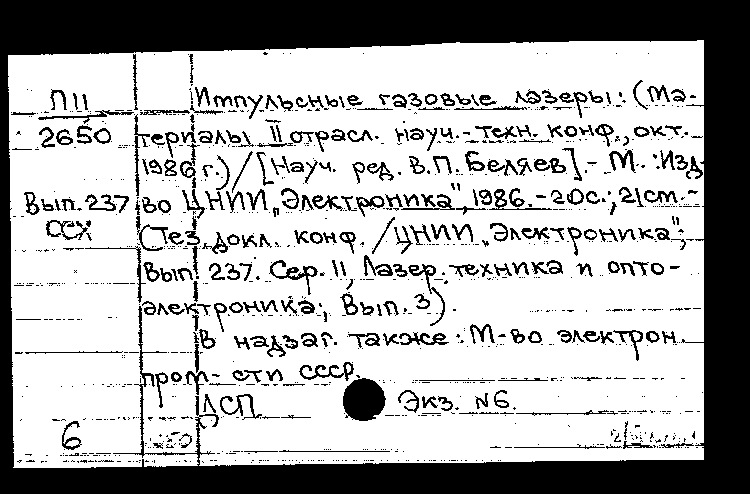 П11
2650
Вып. 237
ССХ
6
Импульсные газовые лазеры: (Ма-
териалы II отрасл. науч.-техн. конф., окт.
1986 г.) / [Науч. ред. В.П. Беляев]. - М. : Изд-
во ЦНИИ „Электроника", 1986. - 20с.; 21см. -
(Тез. докл. конф. / ЦНИИ „Электроника";
Вып. 237. Сер. 11, Лазер. техника и опто-
электроника; Вып. 3).
В надзаг. также: М-во электрон.
пром-сти СССР.
ДСП Экз. N6.